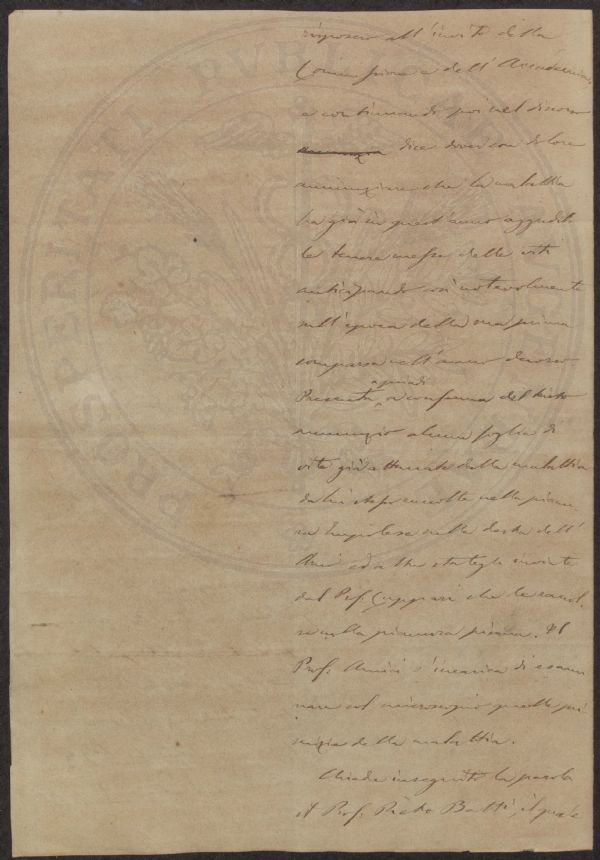 risposero all'invito della
Commissione dell'Accademia,
e continuando poi nel discorso
dice dover con dolore
annunziare che la malattia
ha già in quest'anno aggredito
le tenere messe delle viti
anticipando così notevolmente
sull'epoca della sua prima
comparsa nell'anno decorso.
Presenta quindi a conferma del tristo
annunzio alcune foglie di
vite già attaccate dalla malattia
da lui stesso raccolte nella pianu
ra Empolese sulla destra dell'
ed altre stategli inviate
dal Prof. Cuppari che le raccol
se nella pianura pisana. Il
Prof. Amici s'incarica di esami
nare col microscopio quelle pri
mizie della malattia.
Chiede in seguito la parola
il Prof. Pietro Betti, il quale
PROSPERITATI PVBLICAE